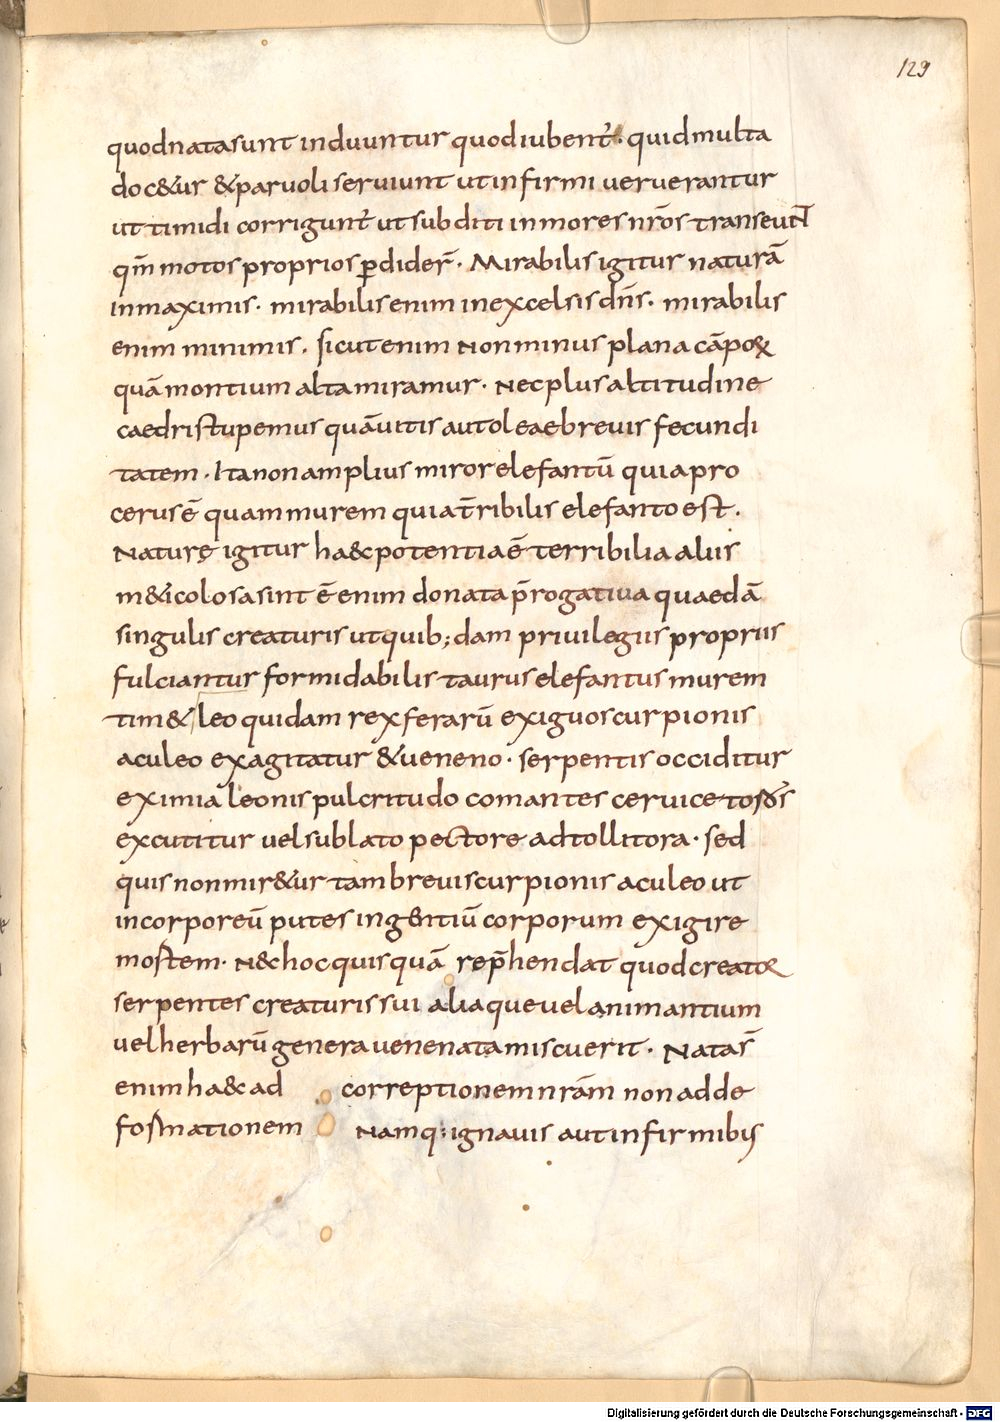 129
quod nata sunt induuntur quod iubent᷑· quid multa
doc&ur & paruoli seruiunt ut infirmi ueruerantur
ut timidi corrigunt᷑ ut subditi in mores nr̄os transeunt
qm̄ motos proprios ꝑdider̄· Mirabilis igitur naturā
in maximis· mirabilis enim in excelsis dn̄s· mirabilis
enim minimis. sicut enim non minus plana cāpoꝝ
quā montium alta miramur· Nec plus altitudine
caedri stupemus quā uitis aut oleae breuis fecundi
tatem· Ita non amplius miror elefantū quia pro
cerus ē quam murem quia t̄ribilis elefanto est·
Naturę igitur haec potentia ē terribilia aliis
m&icolosa sint ē enim donata p̄rogatiua quaedā
singulis creaturis ut quib;dam priuilegiis propriis
fulciantur formidabilis taurus elefantus murem
tim& leo quidam rex ferarū exiguo scurpionis
aculeo exagitatur & ueneno· serpentis occiditur
eximia leonis pulcritudo comantes ceruice toros
excutitur uel sublato pectore adtollit ora· sed
quis non mir&ur tam breui scurpionis aculeo ut
incorporeū putes ingentiū corporum exigire
mortem· N& hoc quisquā rep̄hendat quod creatoꝝ
serpentes creaturis sui aliaque uel animantium
uel herbarū genera uenenata miscuerit· Natas̄
enim ha& ad correptionem nrām non ad de
formationem Namq: ignauis aut infirmibus
Digitalisierung gefördert durch die Deutsche Forschungsgemeinschaft - DFG